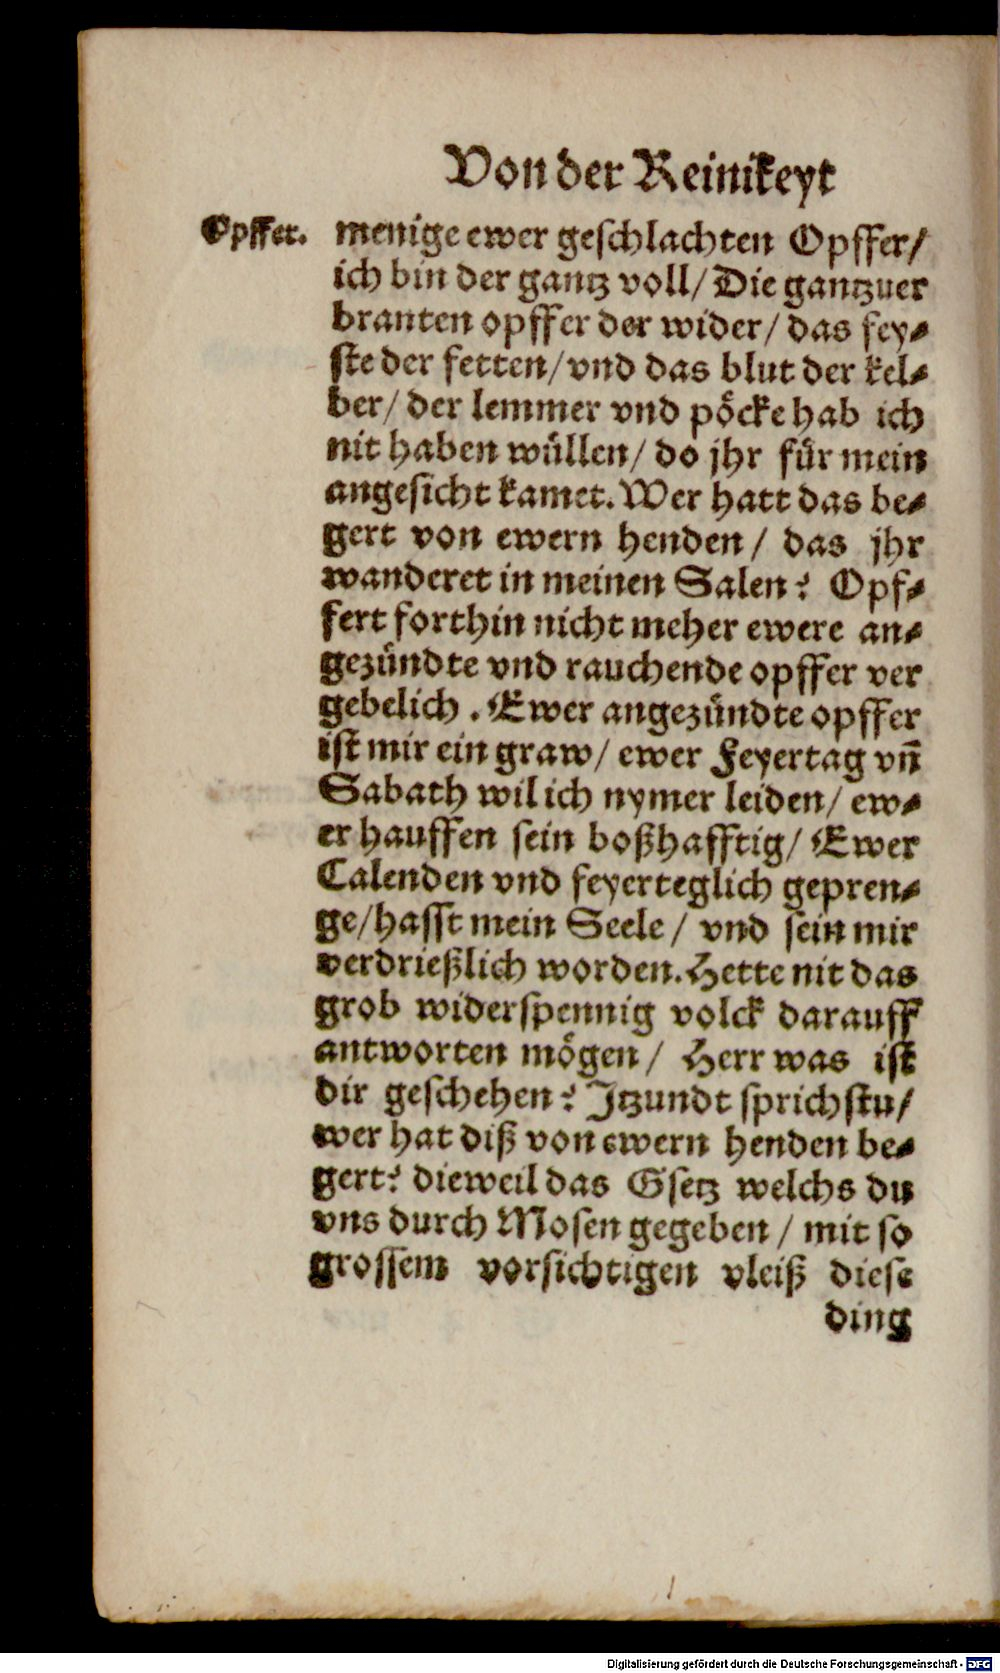 Von der Reinikeyt
Opffer.
menige ewer geschlachten Opffer/
ich bin der gantz voll/ Die gantzuer
branten opffer der wider/ das fey⸗
ste der fetten/ vnd das blut der kel⸗
ber/ der lemmer vnd pöcke hab ich
nit haben wüllen/ do jhr für mein
angesicht kamet. Wer hatt das be⸗
gert von ewern henden/ das jhr
wanderet in meinen Salen? Opf⸗
fert forthin nicht meher ewere an⸗
gezündte vnd rauchende opffer ver
gebelich. Ewer angezündte opffer
ist mir ein graw/ ewer Feyertag vñ
Sabath wil ich nymer leiden/ ew⸗
er hauffen sein boßhafftig/ Ewer
Calenden vnd feyerteglich gepren⸗
ge/ hasst mein Seele/ vnd sein mir
verdrießlich worden. Hette nit das
grob widerspennig volck darauff
antworten mögen/ Herr was ist
dir geschehen? Jtzundt sprichstu/
wer hat diß von ewern henden be⸗
gert? dieweil das Gsetz welchs du
vns durch Mosen gegeben/ mit so
grossem vorsichtigen vleiß diese
ding
Digitalisierung gefördert durch die Deutsche Forschungsgemeinschaft - DFG